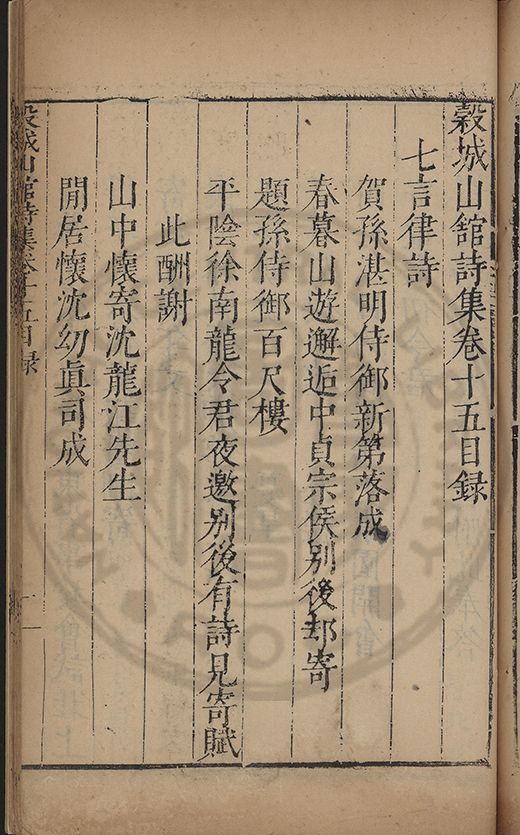 穀城山舘詩集卷十五目録
七言律詩
賀孫湛明侍御新第落成
春暮山遊邂逅中貞宗侯别後却寄
題孫侍御百尺樓
平陰徐南龍令君夜邀别後有詩見寄賦
此酬謝
山中懷寄沈龍江先生
閒居懷沈幼眞司成
穀城山舘詩集卷十五目録
一